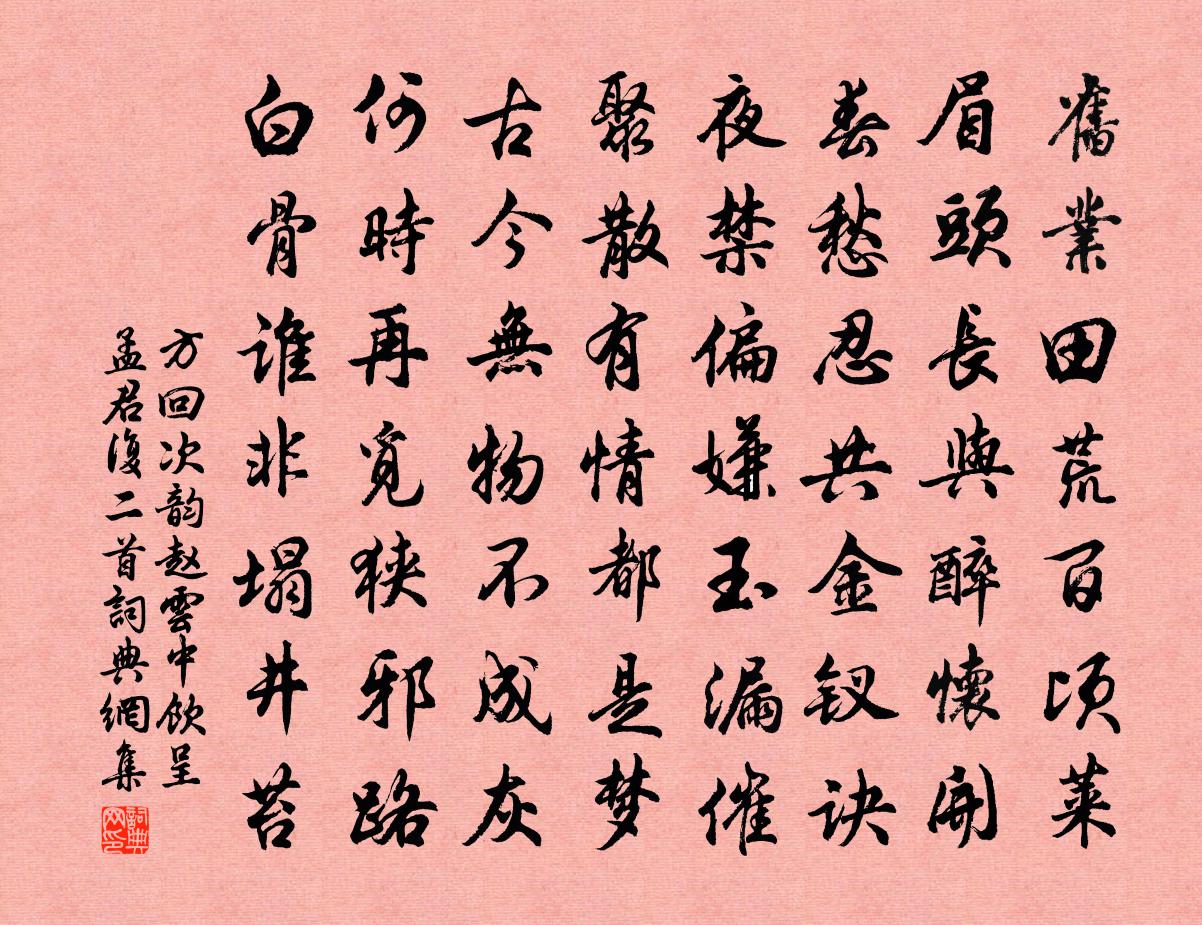 舊業田荒百頃萊
眉頭長與醉懷開
春愁忍共金釵訣
夜禁偏嫌玉漏催
聚散有情都是梦
古今無物不成灰
何時再覓狹邪路
白骨谁非塌井苔
方回次韵赵雲中飲呈
孟君復二首詞典網集
詞典
网印